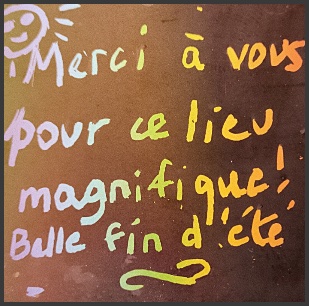 Merci à vous
pour ce lieu
magnifique!
Belle fin d'été